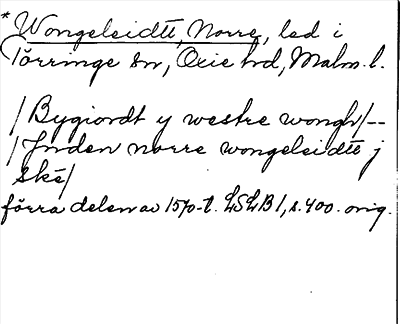 * Wongeleidtt, Norre, led i
Törringe sn, Oxie hd, Malm. l.
/Bygiordt y westre wongh/--
/Jnden norre wongeleidtt j
ské/
förra delen av 1570-t. LSLB 1, s. 400. orig.